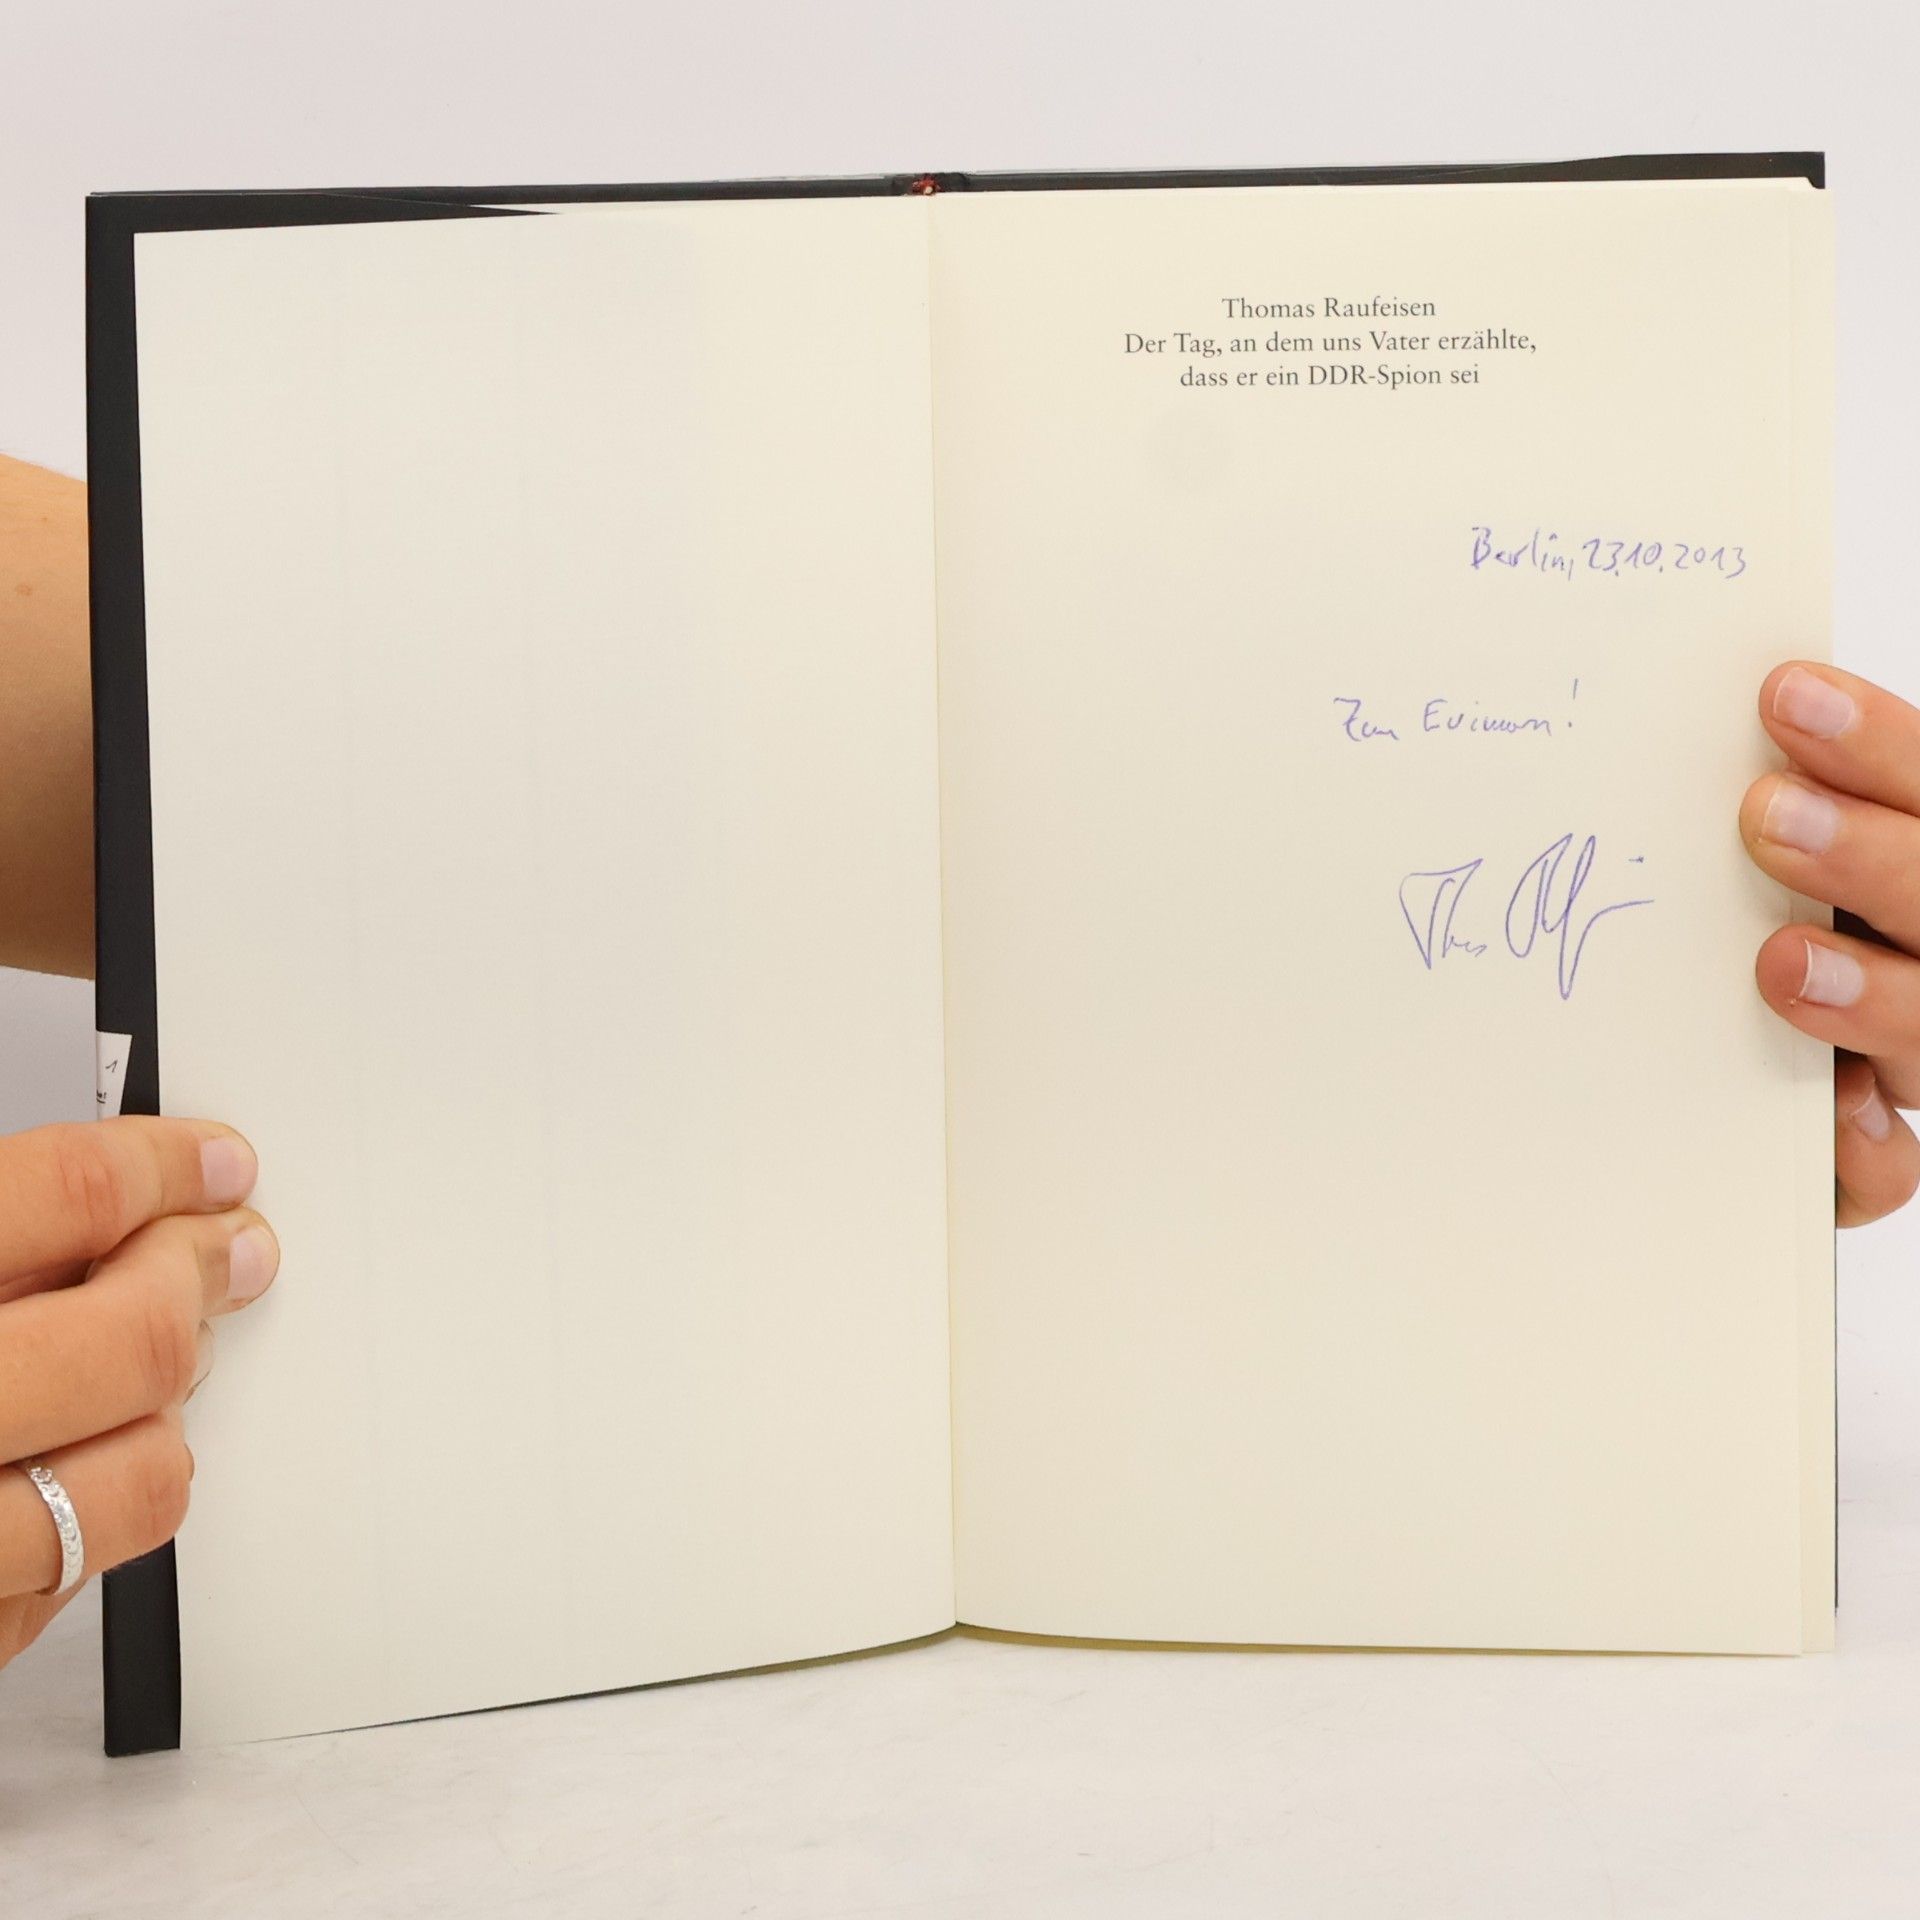 Thomas Raufeisen
Der Tag, an dem uns Vater erzählte,
dass er ein DDR-Spion sei
Berlin, 23.10.2013
Zum
1